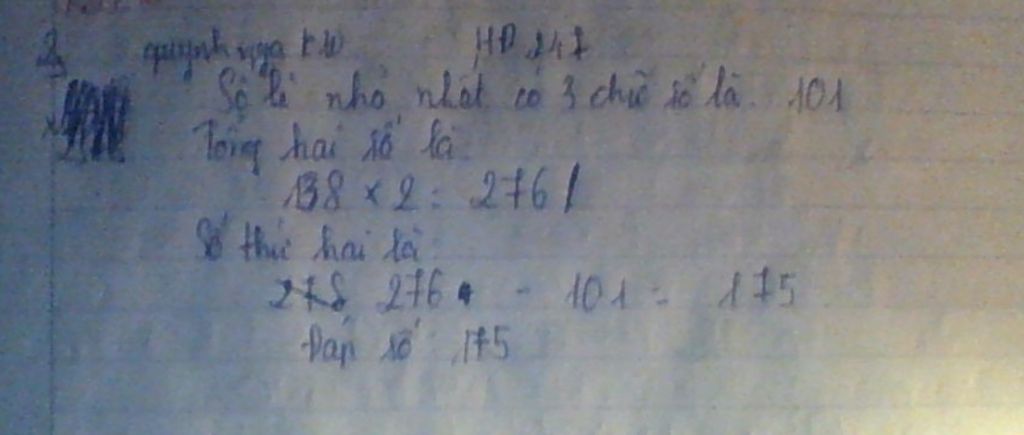 quỳnh nga
Số lẻ nhỏ nhất có 3 chữ số là 101
Tổng hai số là
138 × 2 = 276
Số thứ hai là:
278 276 - 101 = 175
Đáp số: 175